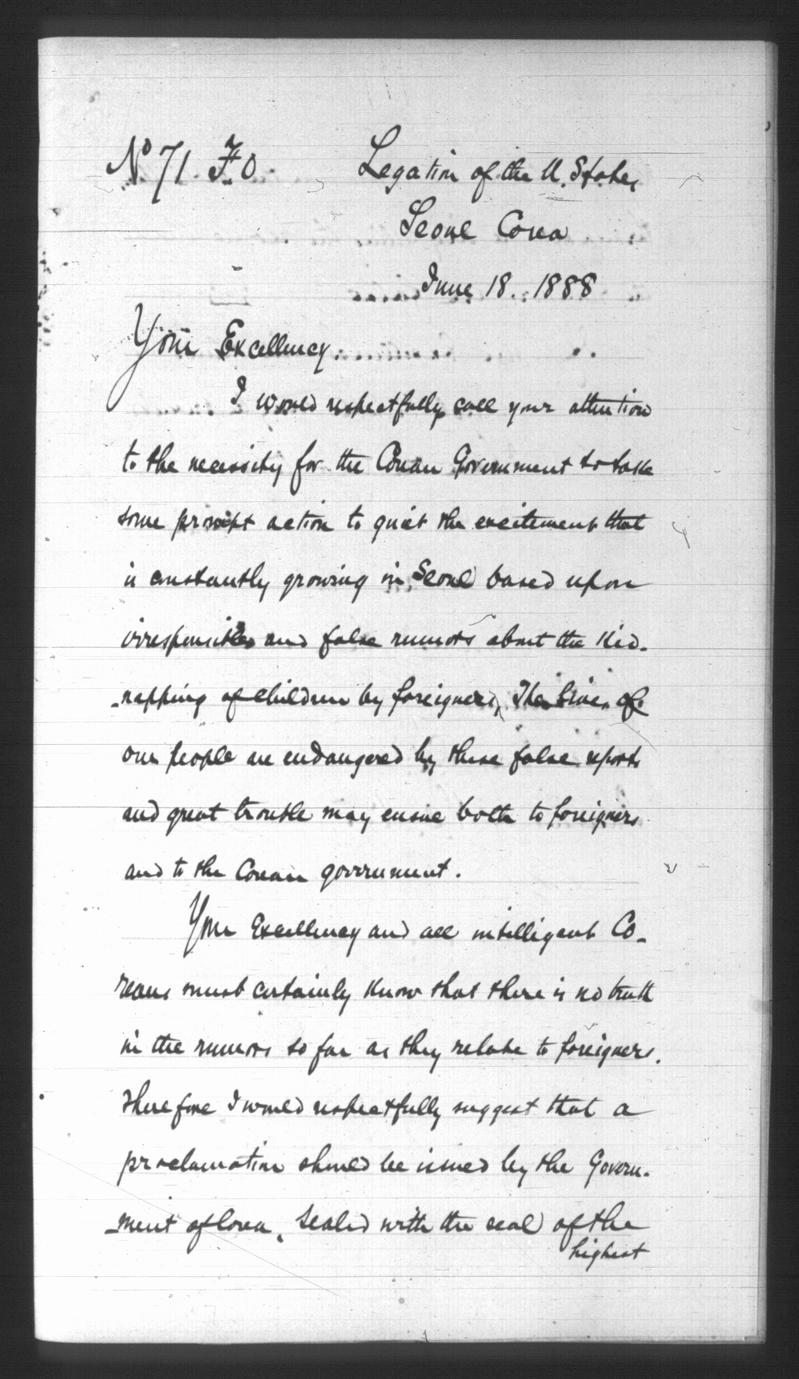 No 71 F.O
Legation of the U. States
Seoul Corea
June 18. 1888
Your Excellency:
I would respectfully call your attention
to the necessity for the Corean Government to take
some prompt action to quiet the excitement that
is constantly growing in Seoul based upon
irresponsible and false rumors about the Kid-
-napping of children by foreigners, The lives of
our people are endangered by these false reports
and great trouble may ensue both to foreigners
and to the Corean government.
Your Excellency and all intelligent Co-
reans must certainly know that there is no truth
in the rumors so far as they relate to foreigners.
Therefore I would respectfully suggest that a
proclamation should be issued by the Govern-
-ment of Corea, Sealed with the seal of the
highest